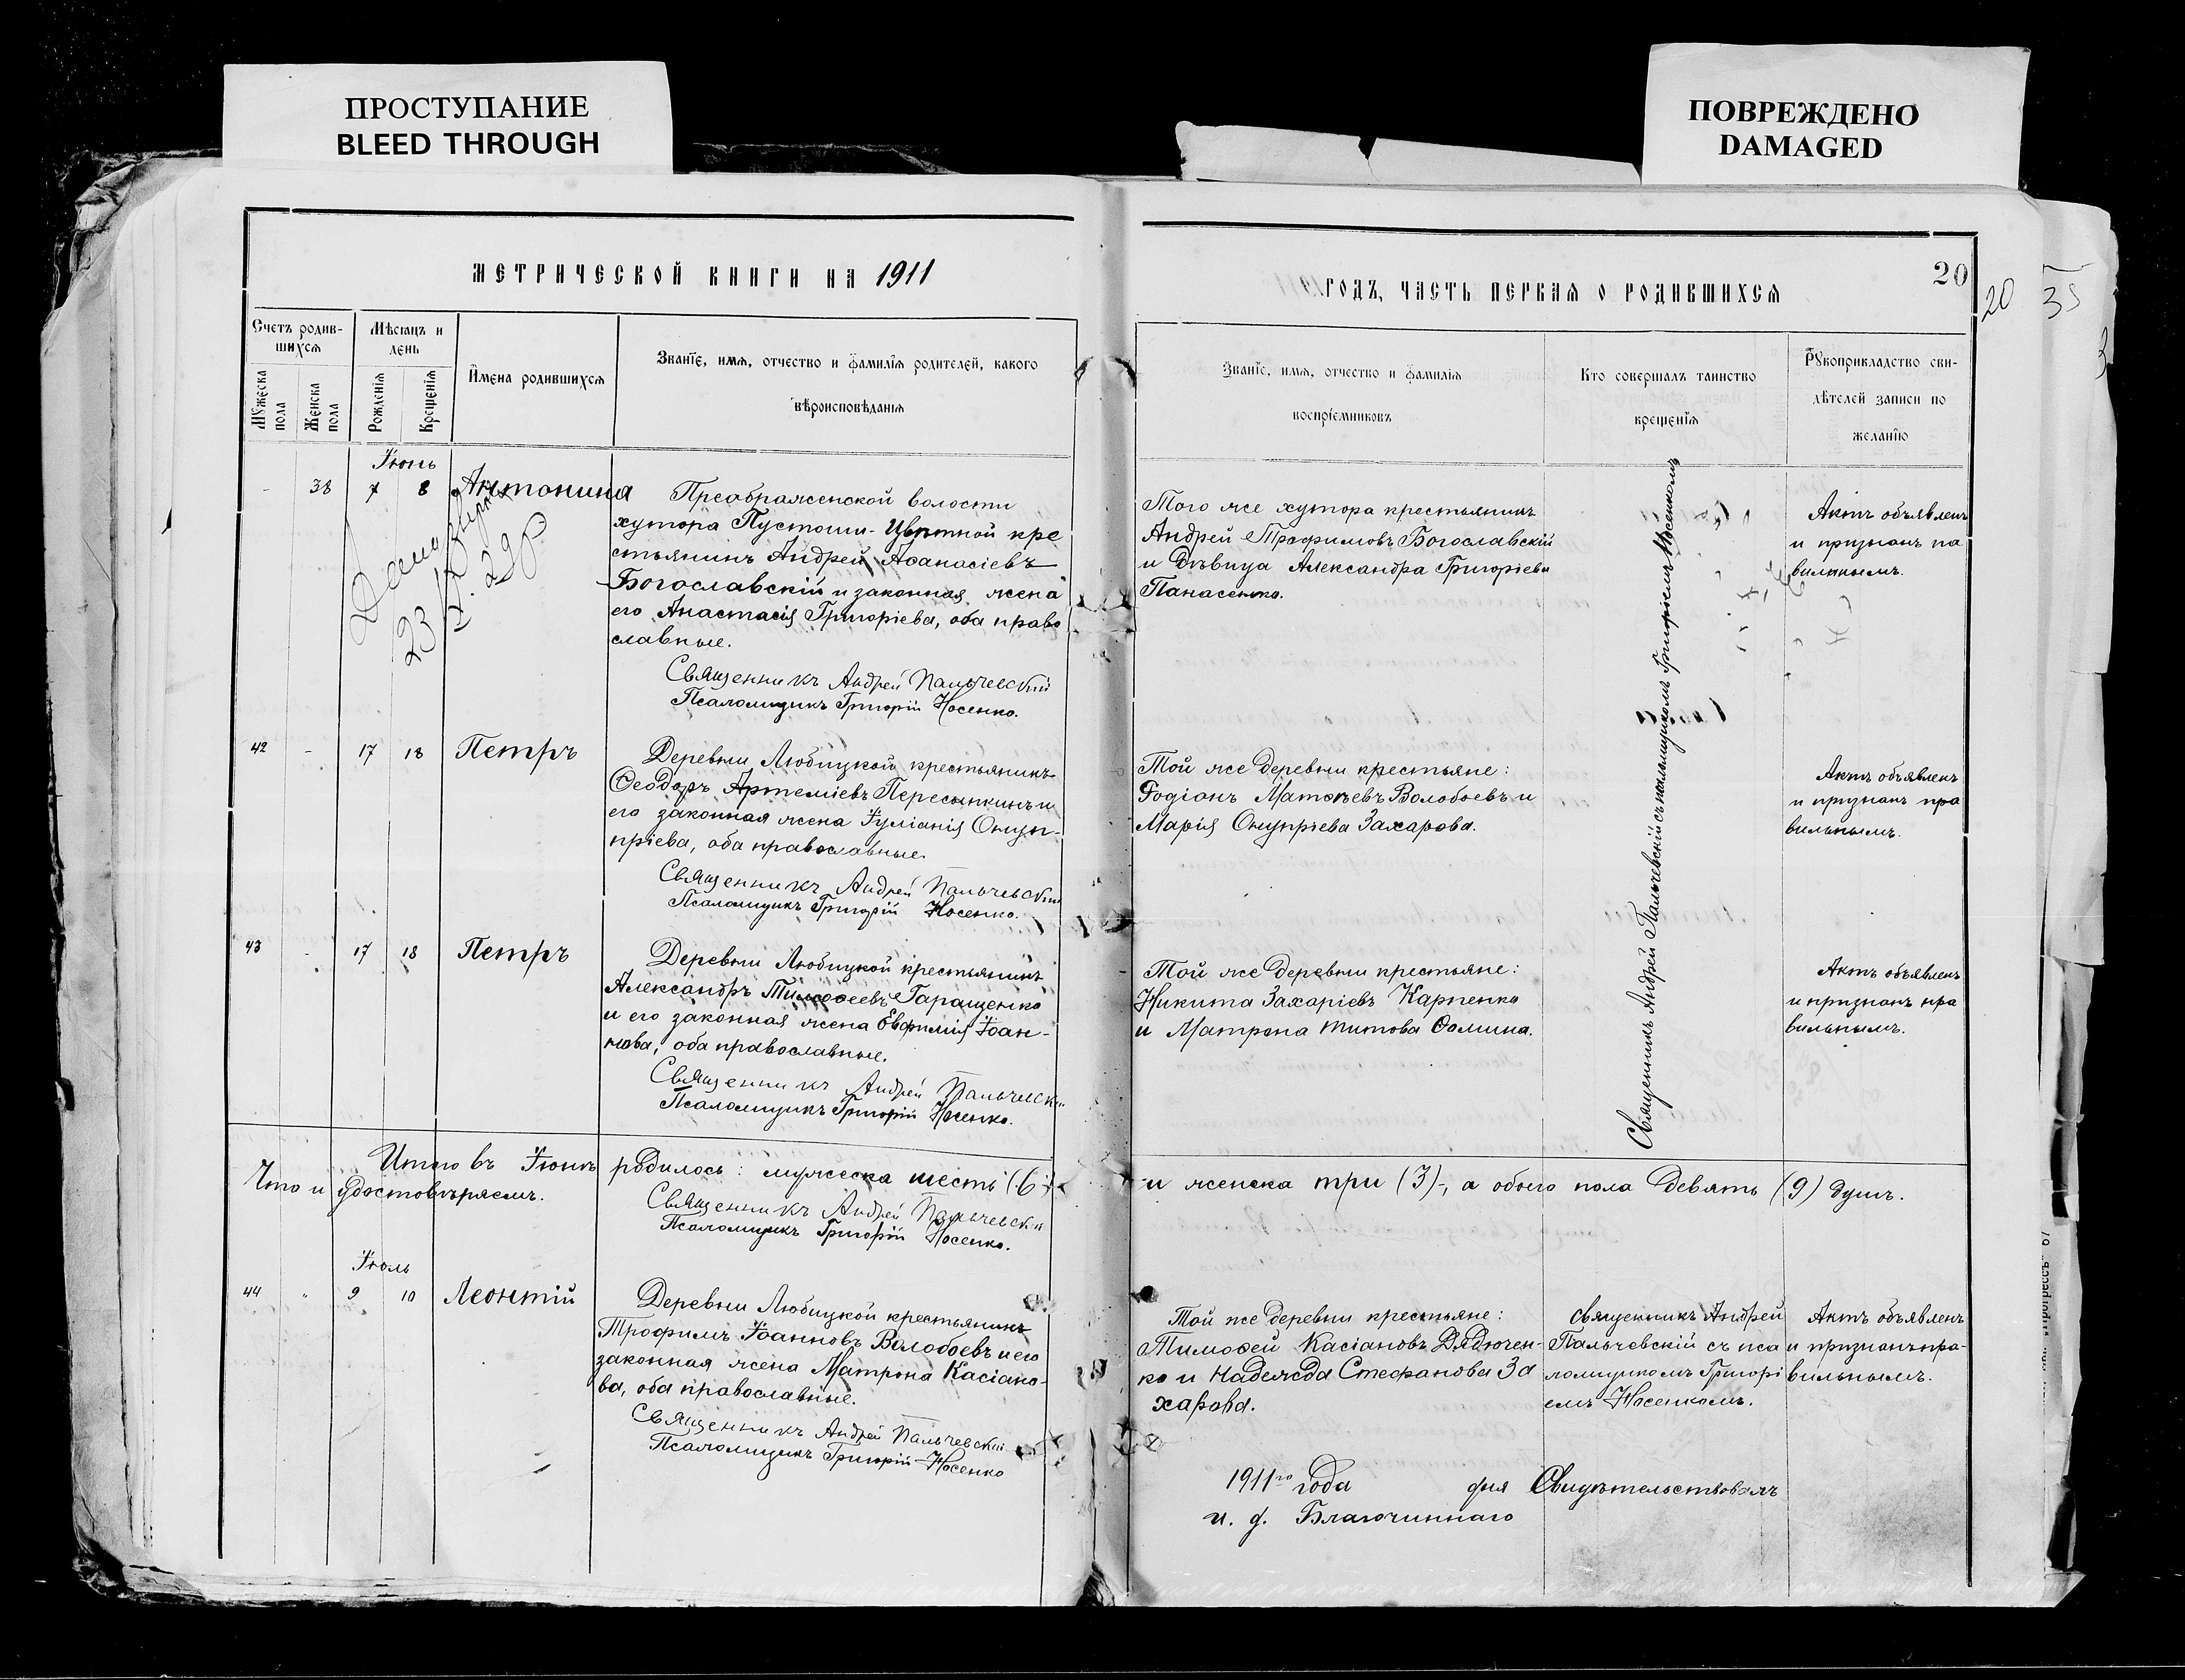 ПРОСТУПАНИЕ
BLEED THROUGH
ПОВРЕЖДЕНО
DAMAGED
МЕТРИЧЕСКОЙ КНИГИ НА 1911
Счетъ родив-
шихся
Мѣсяцъ и
день
Мужеска
пола
Женска
пола
Рожденія
Крещенія
Имена родившихся
Званіе, имя, отчество и фамилія родителей, какого
вѣроисповѣданія
Іюнь
- 38 7 8 Антонина
Преображенской волости
хутора Пустоши-Цвѣтной кре
стьянинъ Андрей Аѳанасіевъ
Богославскій и законная жена
его Анастасія Григоріева, оба право
славные.
Священникъ Андрей Пальчевскій
Псаломщикъ Григорій Носенко.
42 - 17 18 Петръ
Деревни Любицкой крестьянинъ
Ѳеодоръ Артеміевъ Пересыпкинъ и
его законная жена Іуліанія Онуф-
пріева, оба православные.
Священникъ Андрей Пальчевскій
Псаломщикъ Григорій Носенко.
43 - 17 18 Петръ
Деревни Любицкой крестьянинъ
Александръ Тимоѳеевъ Гаращенко
и его законная жена Евфимія Іоан-
нова, оба православные.
Священникъ Андрей Пальчевскій
Псаломщикъ Григорій Носенко.
Итого въ Іюнѣ родилось: мужеска шесть (6)
Что и удостовѣряемъ.
Священникъ Андрей Пальчевскій
Псаломщикъ Григорій Носенко.
Іюль
44 " 9 10 Леонтій
Деревни Любицкой крестьянинъ
Трофимъ Іоанновъ Волобоевъ и его
законная жена Матрона Касіано-
ва, оба православные.
Священникъ Андрей Пальчевскій
Псаломщикъ Григорій Носенко
ГОДЪ, ЧАСТЬ ПЕРВАЯ О РОДИВШИХСЯ
20
20
35
3
Званіе, имя, отчество и фамилія
воспріемниковъ
Кто совершалъ таинство
крещенія
Рукоприкладство сви-
дѣтелей записи по
желанію
Того же хутора крестьянинъ
Андрей Трофимовъ Богославскій
и дѣвица Александра Григоріева
Панасенко.
Актъ объявленъ
и признанъ па
вильнымъ.
Священникъ Андрей Пальчевскій съ псаломщикомъ Григоріемъ Носенкомъ
Той же деревни крестьяне:
Родіонъ Матѳеевъ Волобоевъ и
Марія Онупріева Захарова.
Актъ объявленъ
и признанъ пра
вильнымъ.
Той же деревни крестьяне:
Никита Захаріевъ Карпенко
и Матрона Титова Ѳомина.
Актъ объявленъ
и признанъ пра
вильнымъ.
и женска три (3), а обоего пола девять (9) душъ.
Той же деревни крестьяне:
Тимоѳей Касіановъ Дядючен-
ко и Надежда Стефанова За
харова.
Священникъ Андрей
Пальчевскій съ пса
ломщикомъ Григорі
емъ Носенкомъ.
Актъ объявленъ
и признанъ пра-
вильнымъ.
1911го года дня Свидѣтельствовалъ
и. д. Благочиннаго